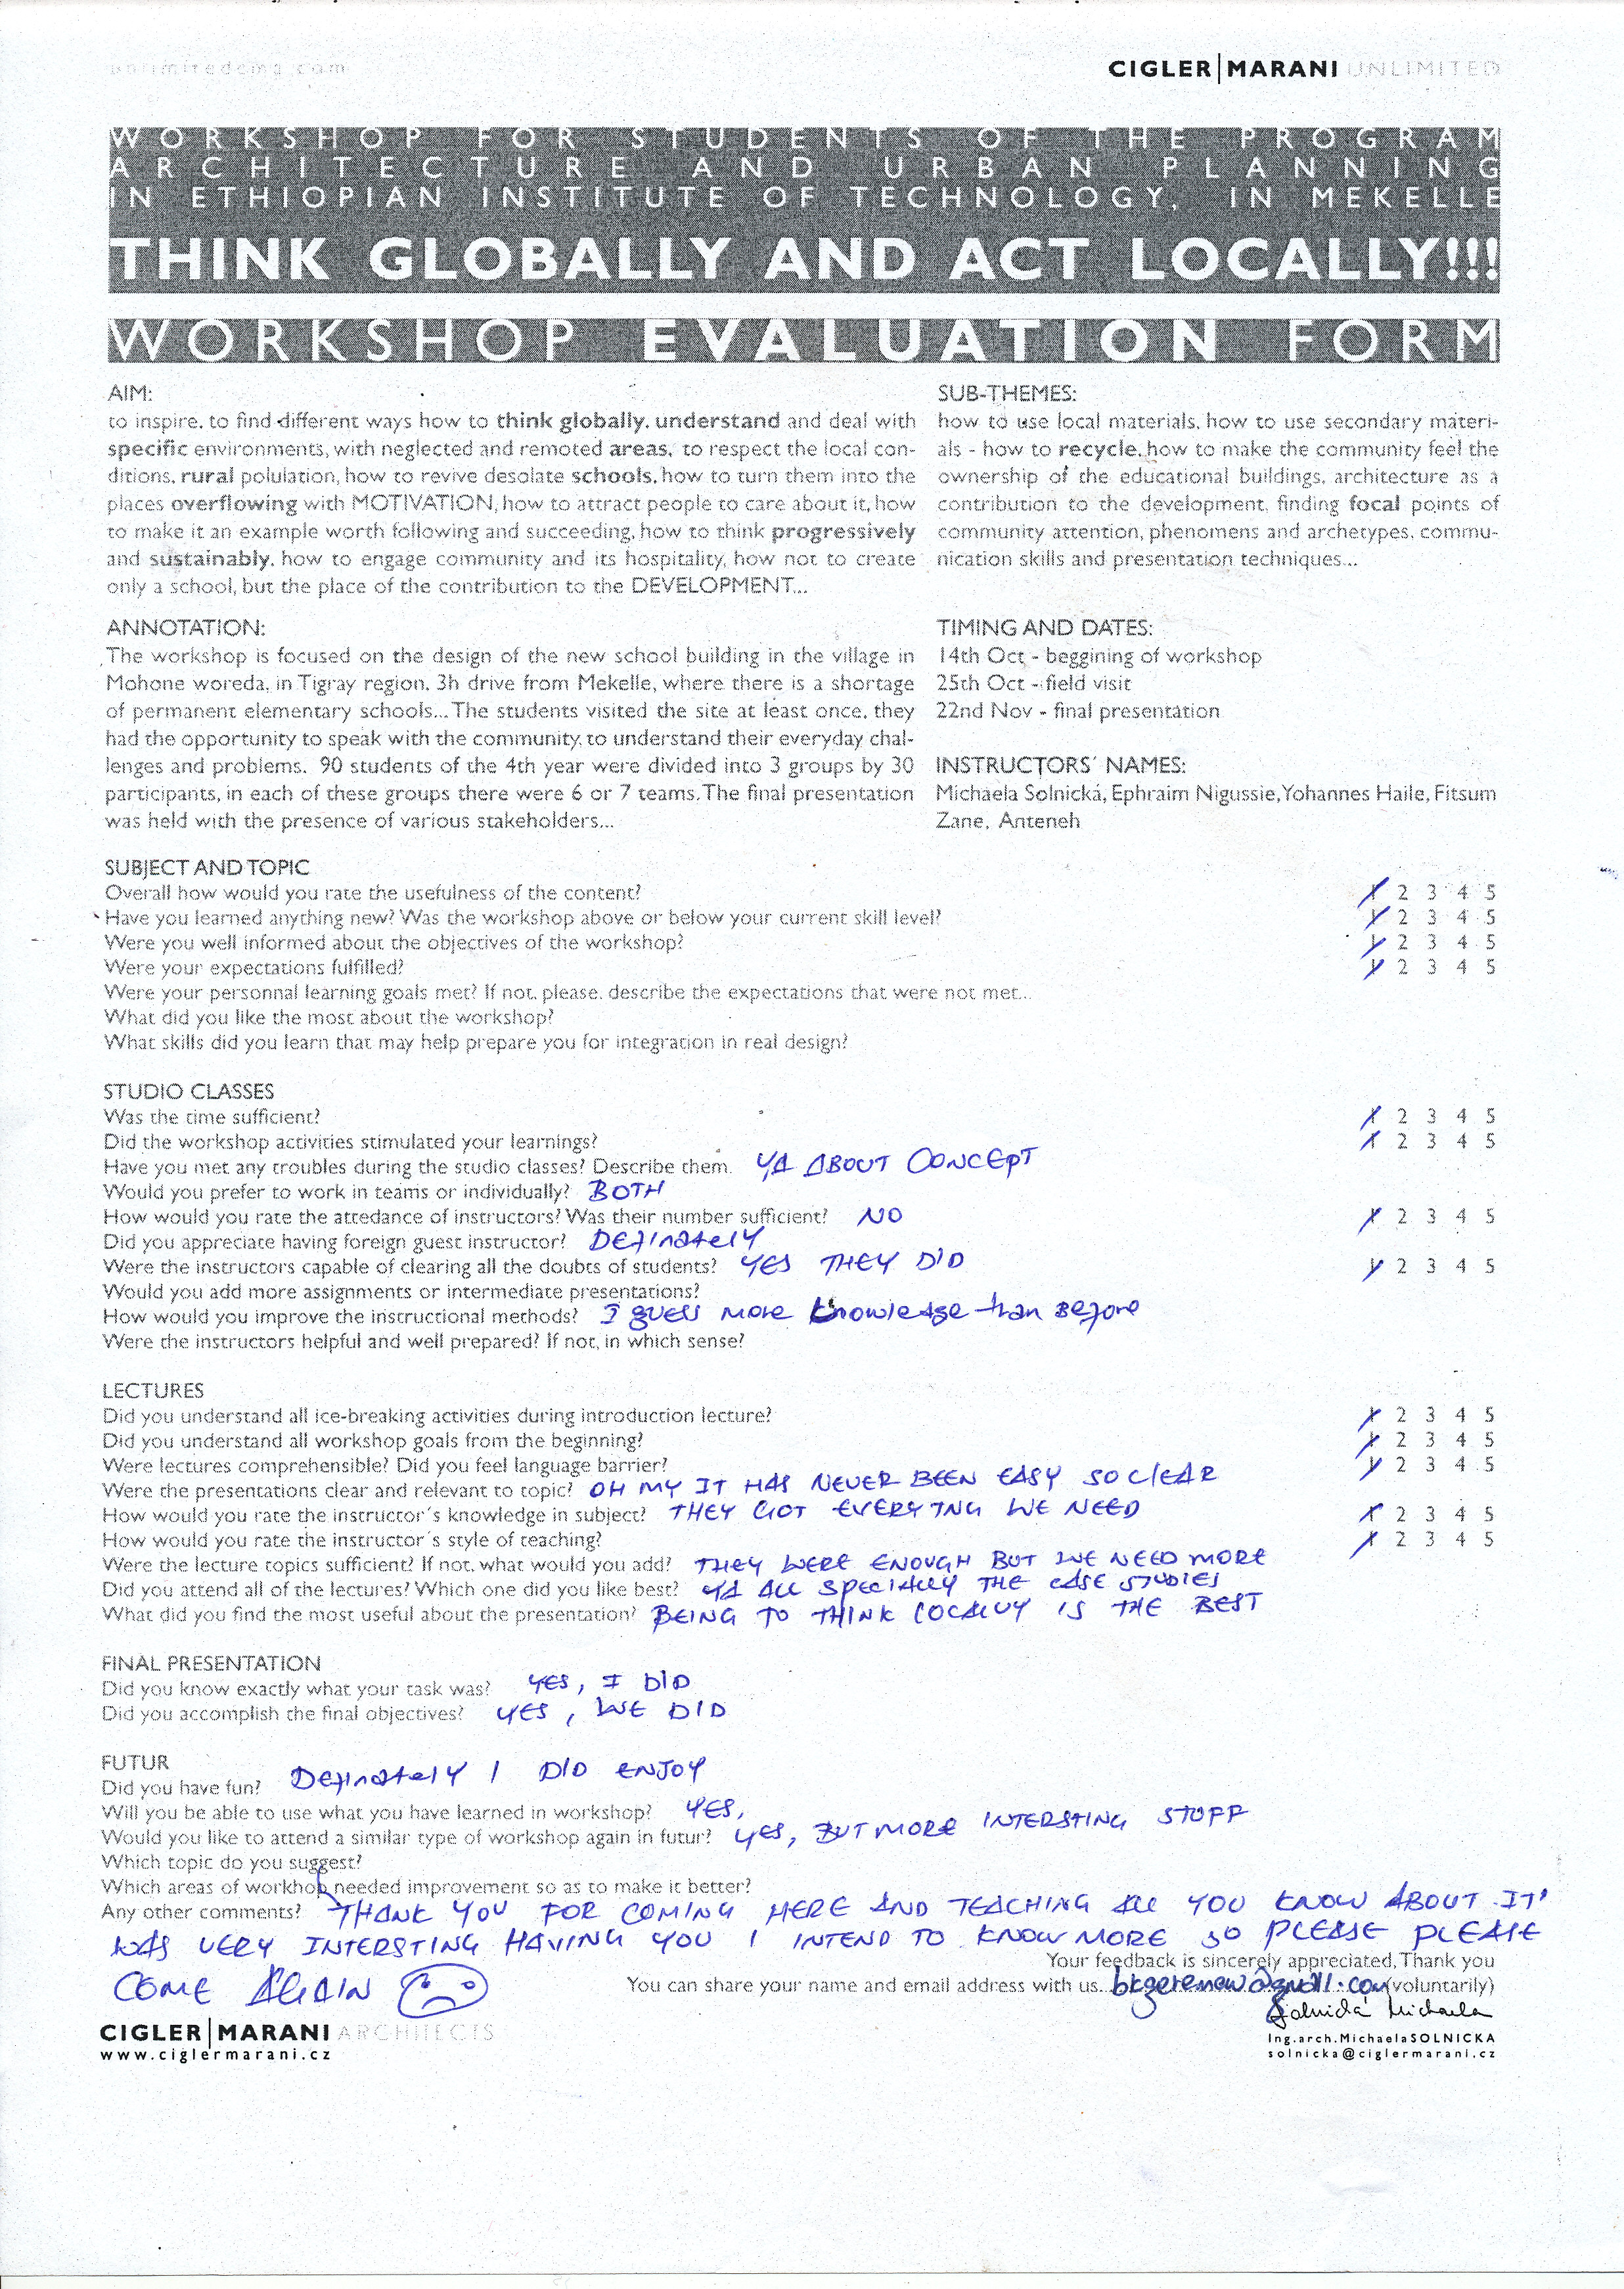 unlimitedcma.com
CIGLER|MARANI UNLIMITED
WORKSHOP FOR STUDENTS OF THE PROGRAM
ARCHITECTURE AND URBAN PLANNING
IN ETHIOPIAN INSTITUTE OF TECHNOLOGY, IN MEKELLE
THINK GLOBALLY AND ACT LOCALLY!!!
WORKSHOP EVALUATION FORM
AIM:
to inspire, to find different ways how to think globally, understand and deal with
specific environments, with neglected and remoted areas, to respect the local con-
ditions, rural polulation, how to revive desolate schools, how to turn them into the
places overflowing with MOTIVATION, how to attract people to care about it, how
to make it an example worth following and succeeding, how to think progressively
and sustainably, how to engage community and its hospitality, how not to create
only a school, but the place of the contribution to the DEVELOPMENT...
SUB-THEMES:
how to use local materials, how to use secondary materi-
als - how to recycle, how to make the community feel the
ownership of the educational buildings, architecture as a
contribution to the development, finding focal points of
community attention, phenomens and archetypes, commu-
nication skills and presentation techniques...
ANNOTATION:
The workshop is focused on the design of the new school building in the village in
Mohone woreda, in Tigray region, 3h drive from Mekelle, where there is a shortage
of permanent elementary schools... The students visited the site at least once, they
had the opportunity to speak with the community, to understand their everyday chal-
lenges and problems. 90 students of the 4th year were divided into 3 groups by 30
participants, in each of these groups there were 6 or 7 teams. The final presentation
was held with the presence of various stakeholders...
TIMING AND DATES:
14th Oct - beggining of workshop
25th Oct - field visit
22nd Nov - final presentation
INSTRUCTORS´ NAMES:
Michaela Solnická, Ephraim Nigussie, Yohannes Haile, Fitsum
Zane, Anteneh
SUBJECT AND TOPIC
Overall how would you rate the usefulness of the content? 1 2 3 4 5
Have you learned anything new? Was the workshop above or below your current skill level? 1 2 3 4 5
Were you well informed about the objectives of the workshop? 1 2 3 4 5
Were your expectations fulfilled? 1 2 3 4 5
Were your personnal learning goals met? If not, please, describe the expectations that were not met...
What did you like the most about the workshop?
What skills did you learn that may help prepare you for integration in real design?
STUDIO CLASSES
Was the time sufficient? 1 2 3 4 5
Did the workshop activities stimulated your learnings? 1 2 3 4 5
Have you met any troubles during the studio classes? Describe them. YA ABOUT CONCEPT
Would you prefer to work in teams or individually? BOTH
How would you rate the attedance of instructors? Was their number sufficient? NO 1 2 3 4 5
Did you appreciate having foreign guest instructor? DEFINATELY
Were the instructors capable of clearing all the doubts of students? YES THEY DID 1 2 3 4 5
Would you add more assignments or intermediate presentations?
How would you improve the instructional methods? I guess more knowledge than Before
Were the instructors helpful and well prepared? If not, in which sense?
LECTURES
Did you understand all ice-breaking activities during introduction lecture? 1 2 3 4 5
Did you understand all workshop goals from the beginning? 1 2 3 4 5
Were lectures comprehensible? Did you feel language barrier? 1 2 3 4 5
Were the presentations clear and relevant to topic? OH MY IT HAS NEVER BEEN EASY SO CLEAR
How would you rate the instructor´s knowledge in subject? THEY GOT EVERYTNG WE NEED 1 2 3 4 5
How would you rate the instructor´s style of teaching? 1 2 3 4 5
Were the lecture topics sufficient? If not, what would you add? THEY WERE ENOUGH BUT WE NEED MORE
Did you attend all of the lectures? Which one did you like best? YA ALL SPECIALLY THE CASE STUDIES
What did you find the most useful about the presentation? BEING TO THINK LOCALLY IS THE BEST
FINAL PRESENTATION
Did you know exactly what your task was? YES, I DID
Did you accomplish the final objectives? YES, WE DID
FUTUR
Did you have fun? DEFINATELY I DID ENJOY
Will you be able to use what you have learned in workshop? YES,
Would you like to attend a similar type of workshop again in futur? YES, BUT MORE INTERSTING STUFF
Which topic do you suggest?
Which areas of workhop needed improvement so as to make it better?
Any other comments? THANK YOU FOR COMING HERE AND TEACHING ALL YOU KNOW ABOUT IT'
WAS VERY INTERSTING HAVING YOU I INTEND TO KNOW MORE SO PLEASE PLEASE
COME AGAIN
Your feedback is sincerely appreciated, Thank you
You can share your name and email address with us... (voluntarily)
Solnická Michaela
CIGLER|MARANI ARCHITECTS
www.ciglermarani.cz
Ing.arch.MichaelaSOLNICKA
solnicka@ciglermarani.cz